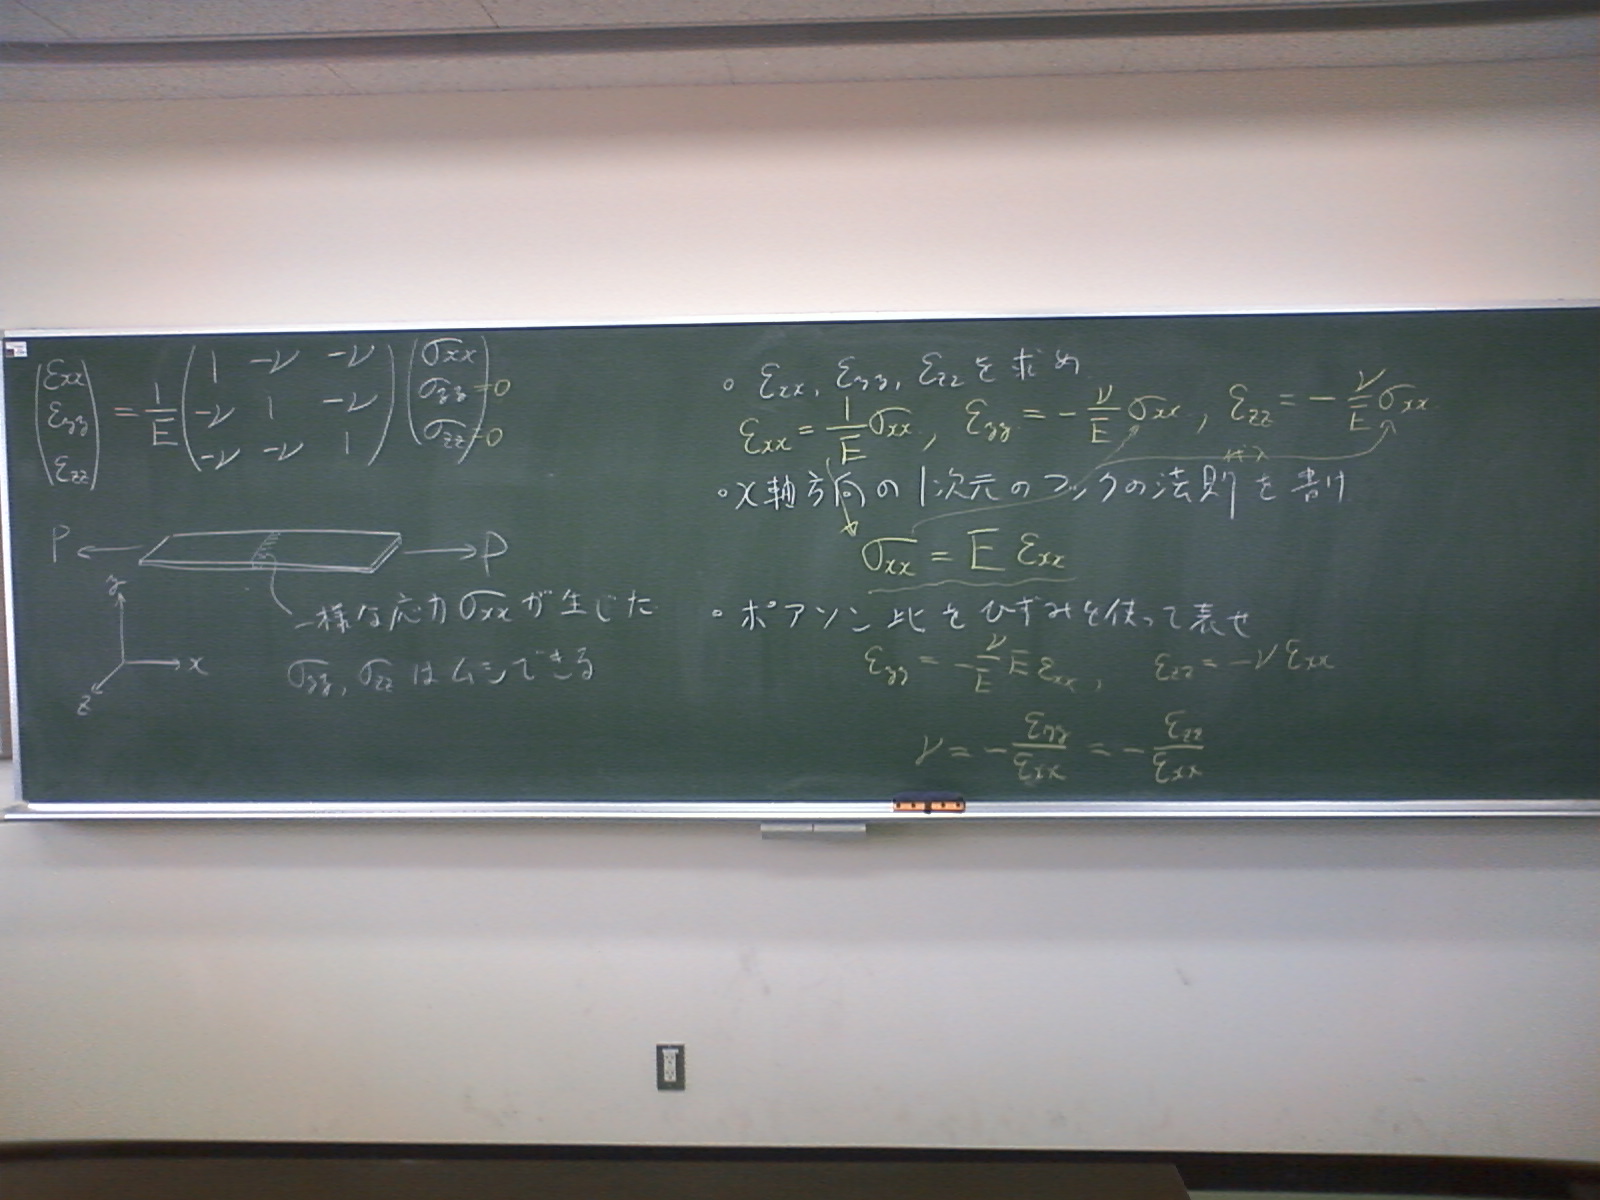 (εxx εyy εzz) = 1/E (1 -ν -ν / -ν 1 -ν / -ν -ν 1) (σxx σyy=0 σzz=0)
P P
一様な応力σxxが生じた
y
x
z
σyy, σzzはムシできる
。εxx, εyy, εzzを求め
εxx = 1/E σxx, εyy = -ν/E σxx, εzz = -ν/E σxx
代入
。x軸方向の1次元のフックの法則を書け
σxx = E εxx
。ポアソン比をひずみを使って表せ
εyy = -ν/E E εxx, εzz = -ν εxx
ν = - εyy/εxx = - εzz/εxx